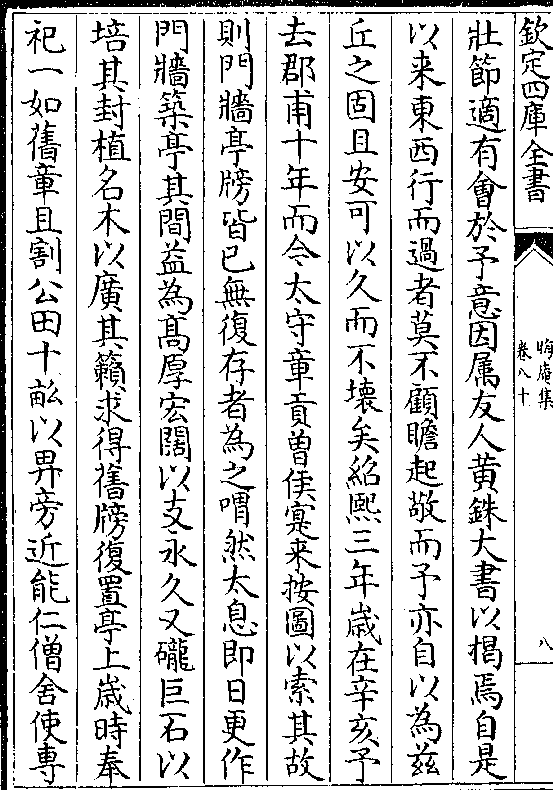 欽定四庫全書
晦庵集
卷八十
八
壯節適有會於予意因属友人黄銖大書以掲焉自是
以来東西行而過者莫不顧瞻起敬而予亦自以為兹
丘之固且安可以久而不壊矣紹熙三年歳在辛亥予
去郡甫十年而今太守章貢曽侯寔来按圖以索其故
則門牆亭牓皆已無復存者為之喟然太息即日更作
門牆築亭其間益為髙厚宏闊以支永久又礲巨石以
培其封植名木以廣其籟求得舊牓復置亭上歳時奉
祀一如舊章且割公田十畝以畀旁近能仁僧舍使専